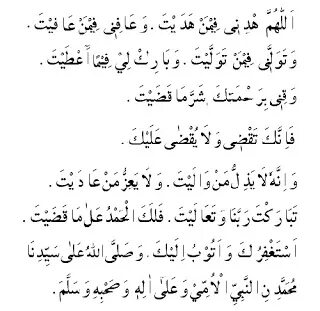 اَللّٰهُمَّ هْدِنِى فِيْمَنْ هَدَيْتَ . وَعَافِنِى فِيْمَنْ عَافَيْتَ .
وَتَوَلَّنِى فِيْمَنْ تَوَلَّيْتَ . وَبَارِكْ لِيْ فِيْمَا أَعْطَيْتَ .
وَقِنِى بِرَحْمَتِكَ شَرَّمَا قَضَيْتَ .
فَاِنَّكَ تَقْضِى وَلَا يُقْضٰى عَلَيْكَ .
وَاِنَّهٗ لَا يَذِلُّ مَنْ وَالَيْتَ . وَلَا يَعِزُّ مَنْ عَادَيْتَ .
تَبَارَكْتَ رَبَّنَا وَتَعَالَيْتَ . فَلَكَ الْحَمْدُ عَلٰى مَا قَضَيْتَ .
اَسْتَغْفِرُكَ وَاَتُوْبُ اِلَيْكَ . وَصَلَّى اللّٰهُ عَلٰى سَيِّدِنَا
مُحَمَّدِ نِالنَّبِيِّ الْاُمِّيِّ وَعَلٰى اٰلِهٖ وَصَحْبِهٖ وَسَلَّمَ .